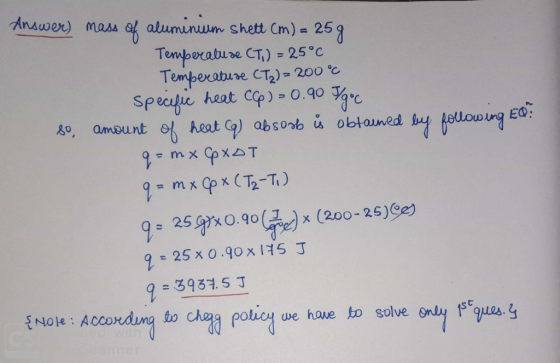 Answer) mass of aluminium shett (m) = 25g
Temperature (T₁) = 25°C
Temperature (T₂) = 200°C
Specific heat (Cp) = 0.90 J/g°C
so, amount of heat (q) absorb is obtained by following EQⁿ:
q = m × Cp × ΔT
q = m × Cp × (T₂-T₁)
q = 25 (g) × 0.90 (J/g°C) × (200-25) (°C)
q = 25 × 0.90 × 175 J
q = 3937.5 J
{Note: According to chegg policy we have to solve only 1st ques.}